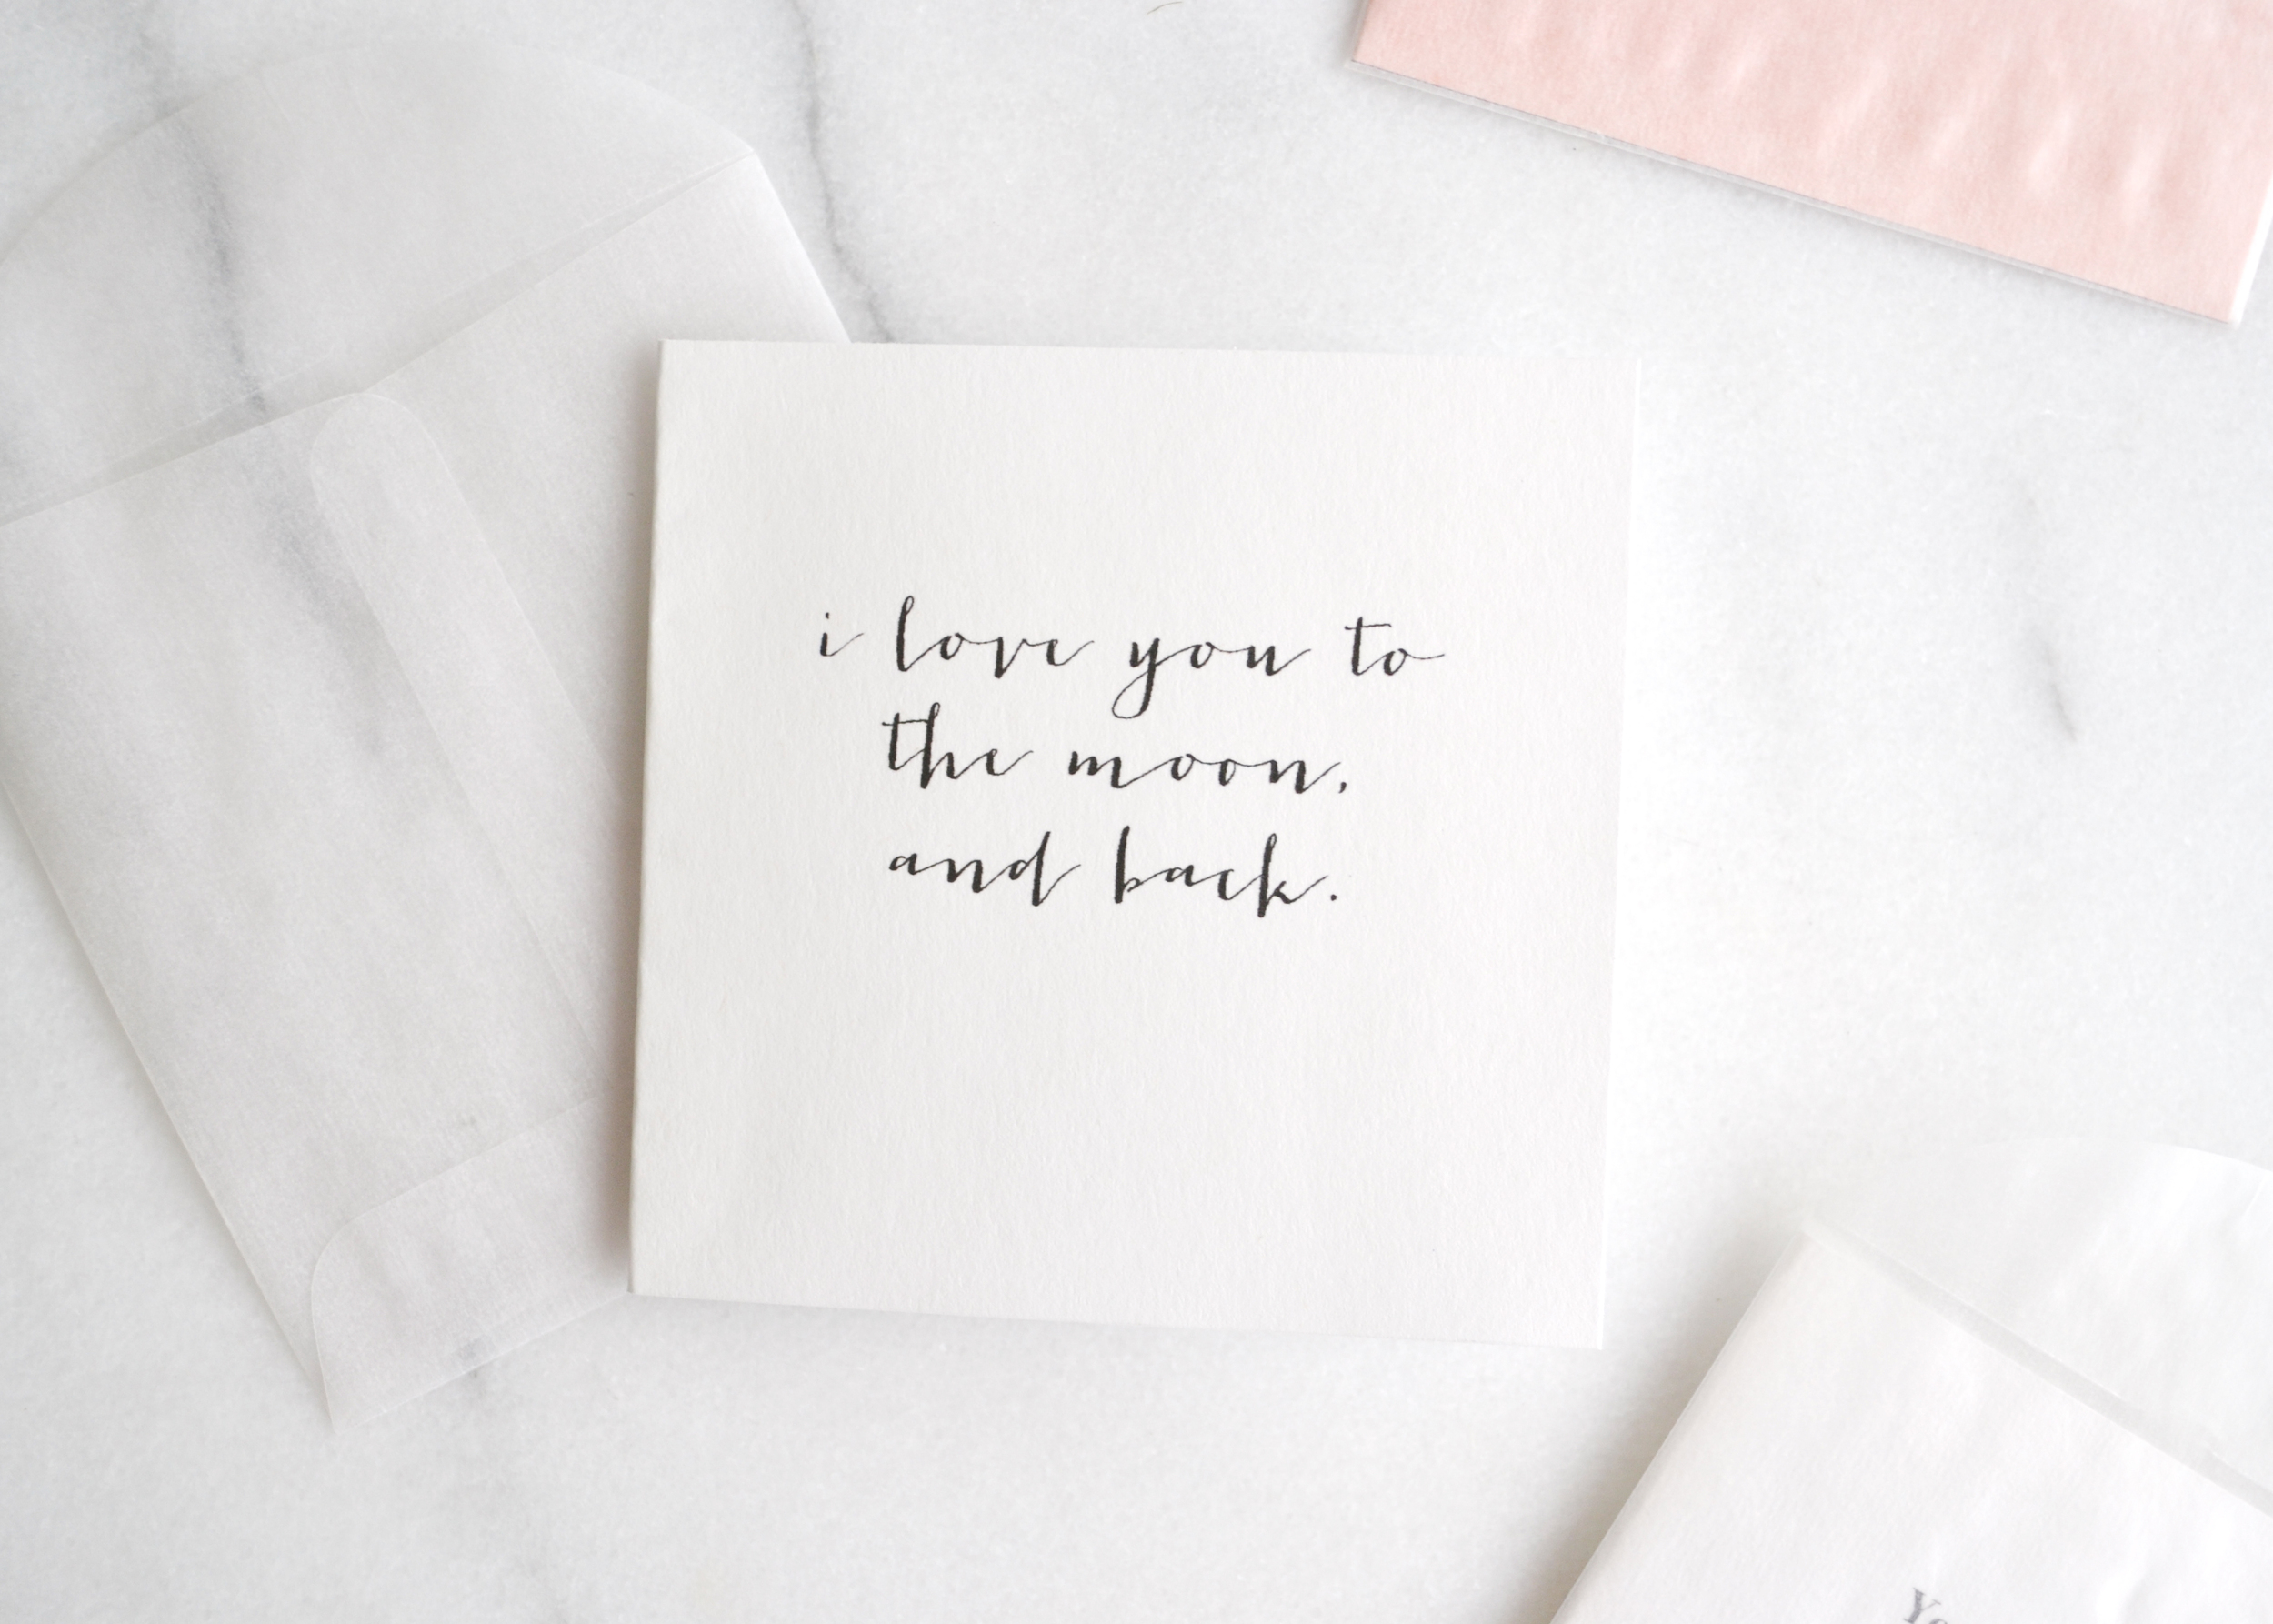 i love you to
the moon,
and back.